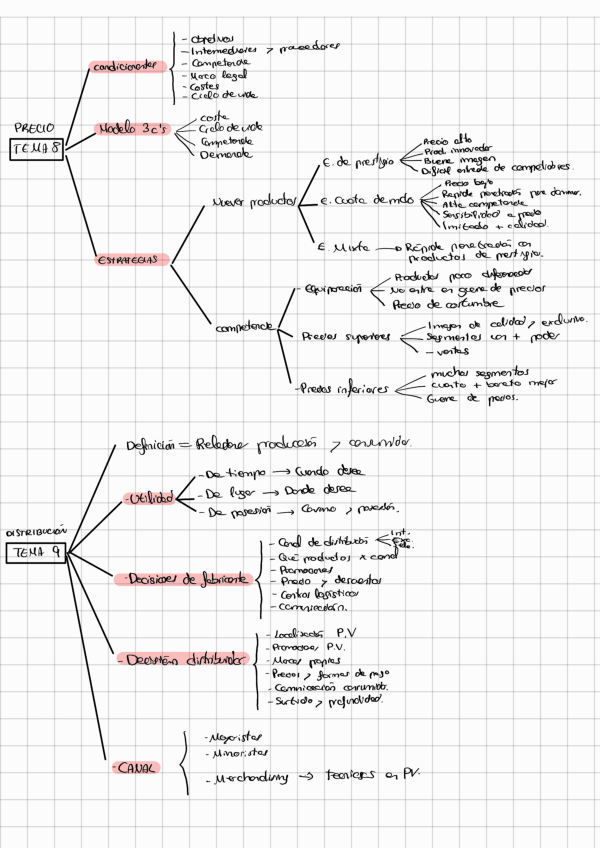 PRECIO
TEMA 8
condicionantes
- Objetivos
- Intermediarios y proveedores
- Competencia
- Marco legal
- Costes
- Ciclo de vida
Modelo 3c's
coste
Ciclo de vida
Competencia
Demanda
ESTRATEGIAS
Nuevos productos
E. de prestigio
Precio alto
Prod. innovador
Buena imagen
Difícil entrada de competidores.
E. Cuota de mdo
Precio bajo
Rápida penetración para dominar.
Alta competencia
Sensibilidad a precio
Imitado + calidad.
E. Mixta → Rápida penetración con
productos de prestigio.
competencia
- Equiparación
Productos poco diferenciados
No entra en guerra de precios
Precio de costumbre
Precios superiores
Imagen de calidad y exclusiva.
Segmentos con + poder
- ventas
- Precios inferiores
muchos segmentos
cuanto + barato mejor
Guerra de precios.
DISTRIBUCIÓN
TEMA 9
Definición = Relaciona producción y consumidor.
- Utilidad
- De tiempo → Cuando desea
- De lugar → Donde desea
- De posesión → Consumo y posesión.
- Decisiones de fabricante
- Canal de distribución
Int.
Exc.
- Qué productos x canal
- Promociones
- Precio y descuentos
- Costes logísticos
- Comunicación.
- Decisión distribuidor
- Localización P.V
- Promociones P.V.
- Marcas propias
- Precios y formas de pago
- Comunicación consumidor.
- Surtido y profundidad.
- CANAL
- Mayoristas
- Minoristas
- Merchandising → técnicas en PV.